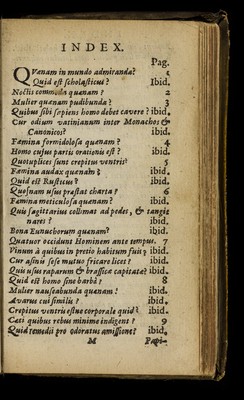 INDEX.
Pag.
Quænam in mundo admiranda? 1
Quid eſt ſcholaſticus? Ibid.
Noctis commoda quænam? 2
Mulier quænam pudibunda? 3
Quibus ſibi ſapiens homo debet cavere? ibid.
Cur odium vatinianum inter Monachos &
Canonicos? ibid.
Fæmina formidoloſa quænam? 4
Homo cujus partis orationis eſt? ibid.
Quotuplices ſunt crepitus ventris? 5
Fæmina audax quænam? ibid.
Quid eſt Ruſticus? ibid.
Quoſnam uſus præſtat charta? 6
Fæmina meticuloſa quænam? ibid.
Quis ſagittarius collimat ad pedes, & tangit
nares? ibid.
Bona Eunuchorum quænam? ibid.
Quatuor occidunt Hominem ante tempus. 7
Vinum à quibus in pretio habitum fuit? ibid.
Cur aſini ſeſe mutuo fricare licet? ibid.
Quis uſus raparum & braſſicæ capitatæ? ibid.
Quid eſt homo ſine barba? 8
Mulier nauſeabunda quænam? ibid.
Avarus cui ſimilis? ibid.
Crepitus ventris eſtne corporale quid? ibid.
Cæci quibus rebus minime indigent? 9
Quid remedii pro odoratus amiſſione? ibid.
M Papi-